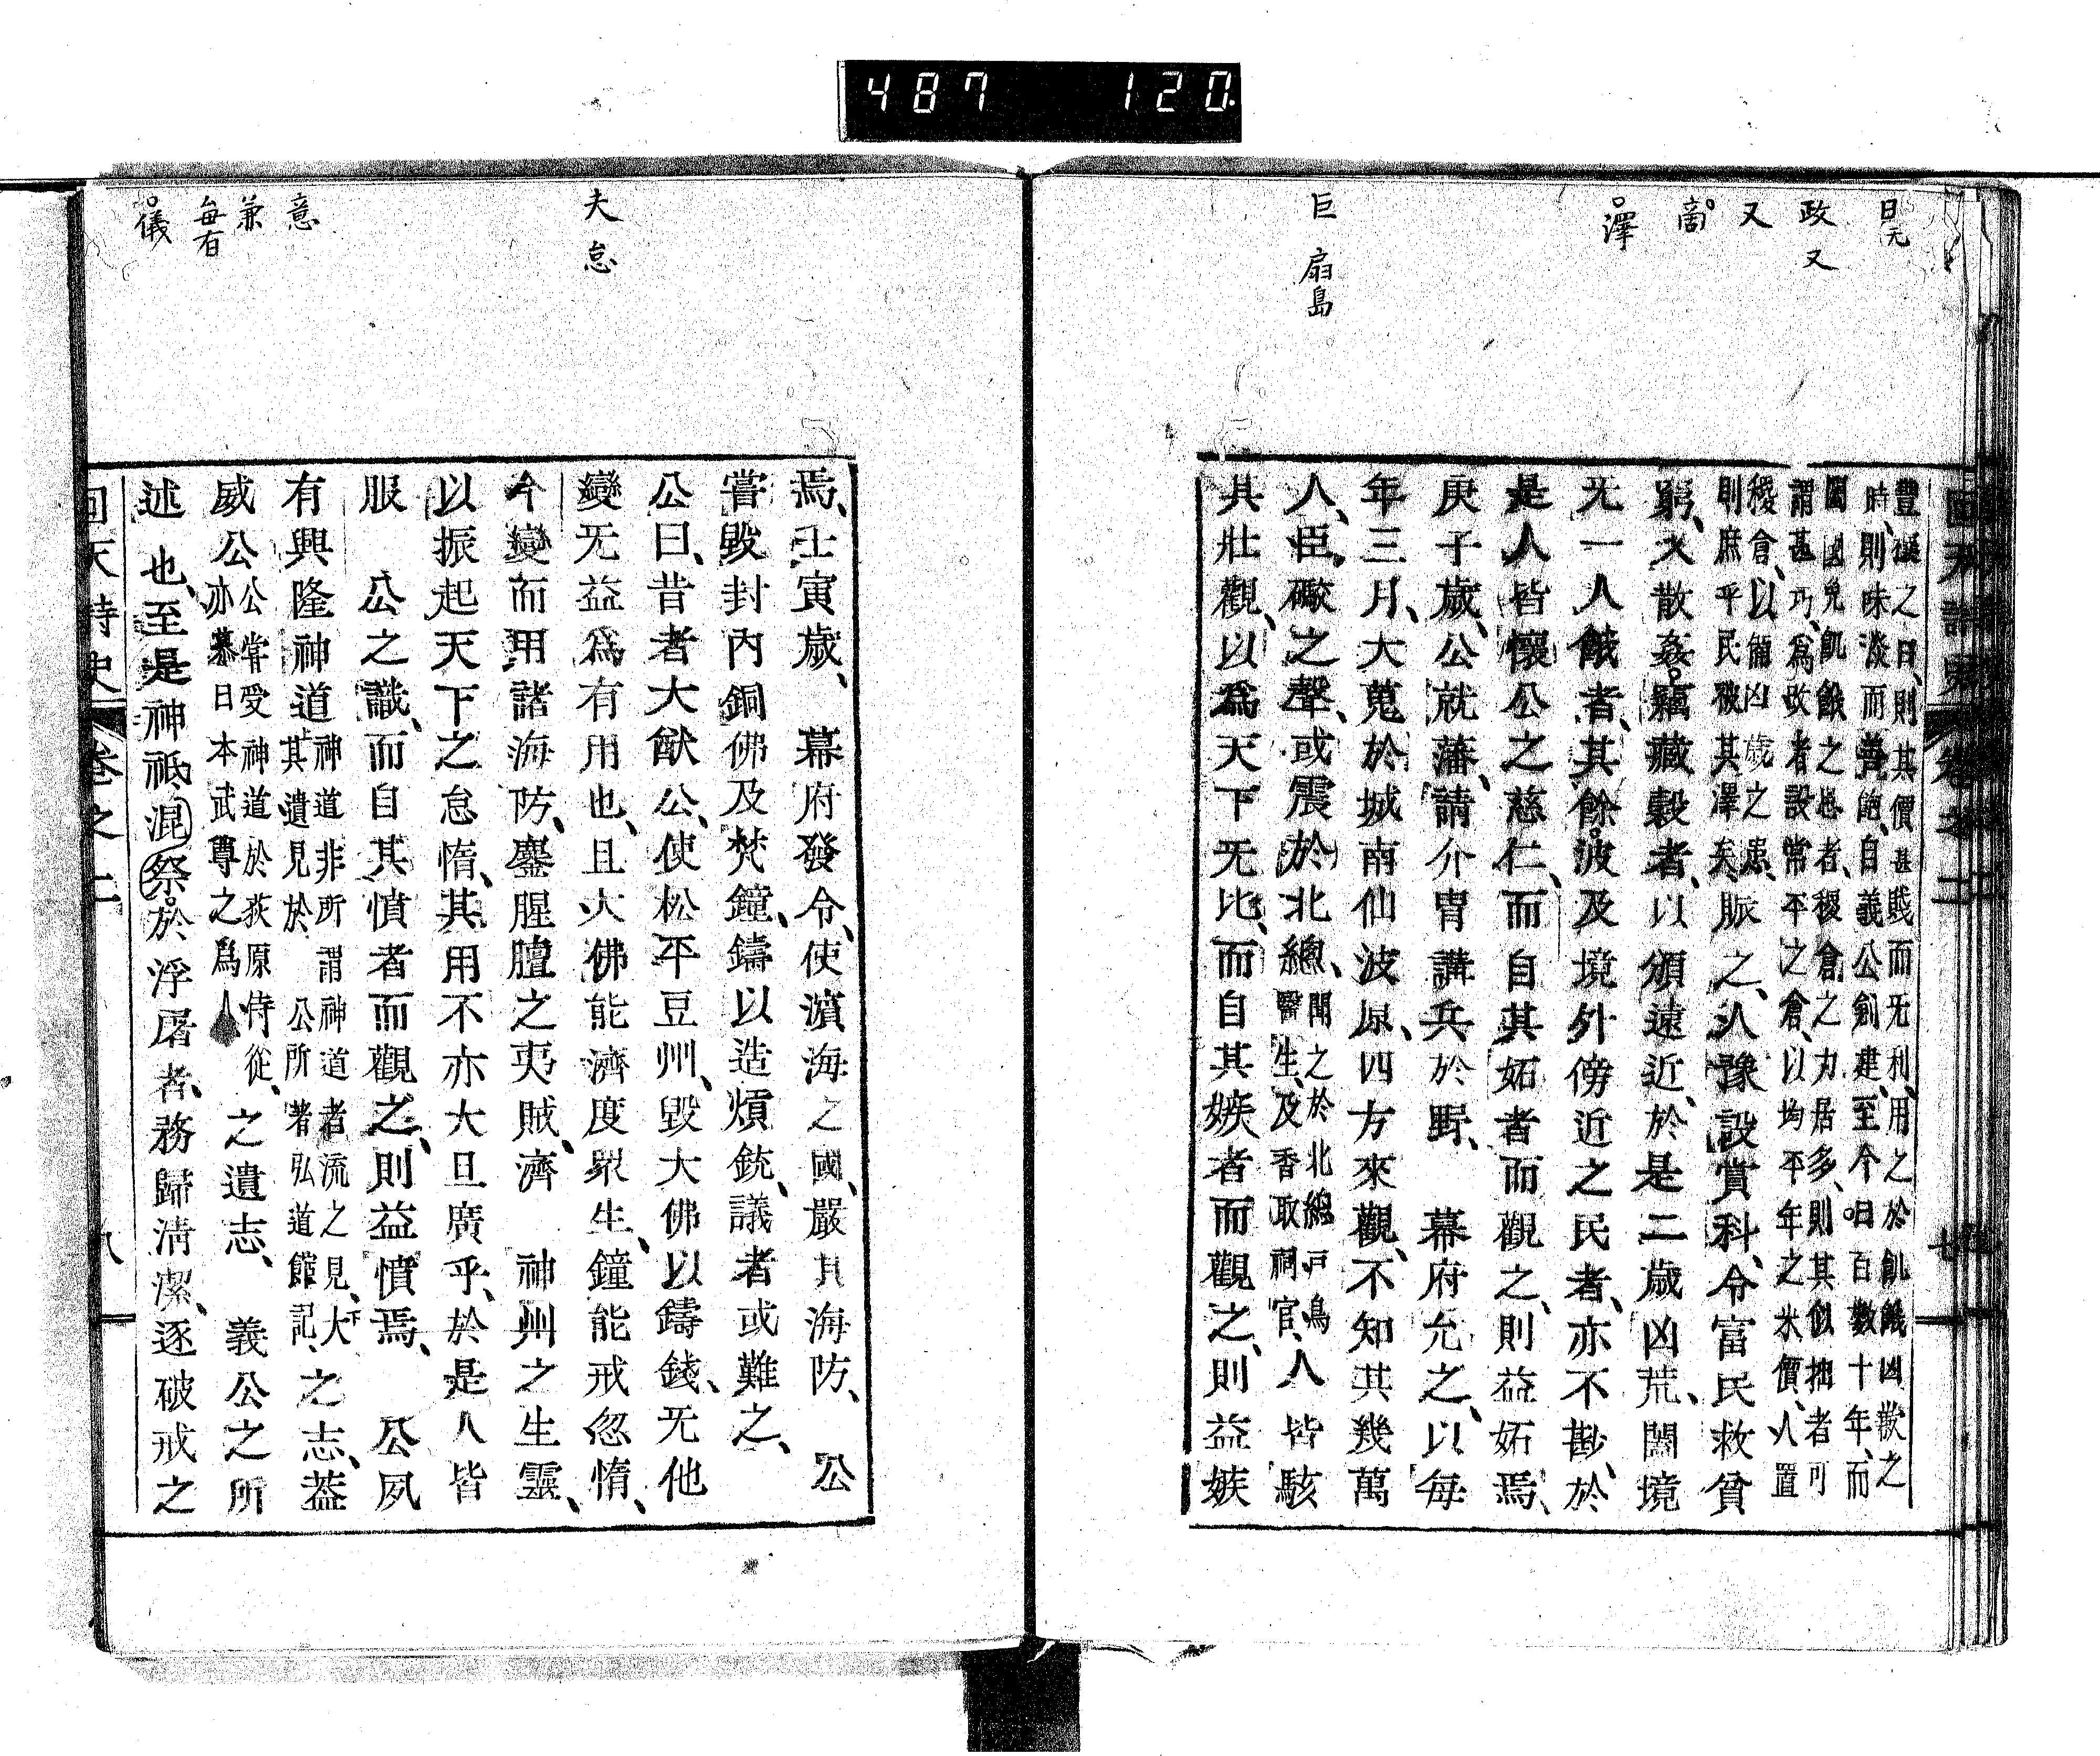 487 120
日元
政又
又
啻
澤
巨 扇島
豐儀之日、則其價甚賤而无利、用之於飢饑凶歉之
時、則味淡而易飽、自義公創建、至今日百數十年、而
闔國免飢餓之患者、稷倉之力居多、則其似拙者可
謂甚巧、爲政者設常平之倉、以均平年之米價、人置
稷倉、以備凶歳之患、
則庶乎民被其澤矣、
賑之、又豫設賞科、令富民救貧
窮、又散姦竊藏穀者、以頒遠近、於是二歳凶荒、闔境
无一人餓者、其餘波及境外傍近之民者、亦不尠、於
是人皆懷公之慈仁、而自其妬者而觀之、則益妬焉、
庚子歳、公就藩、請介冑講兵於野、幕府允之、以每
年三月、大蒐於城南仙波原、四方來觀、不知其幾萬
人、巨礮之聲、或震於北總、
聞之於北總戸鳥
醫生、及香取祠官、
人皆駭
其壯觀、以爲天下无比、而自其嫉者而觀之、則益嫉
回天詩史 卷之二 七
夫怠
意
兼
毎有
儀
焉、壬寅歳、幕府發令、使濱海之國、嚴其海防、公
嘗毀封內銅佛及梵鐘、鑄以造熕銃、議者或難之、
公曰、昔者大猷公、使松平豆州、毀大佛以鑄錢、无他
變无益爲有用也、且大佛能濟度衆生、鐘能戒忽惰、
今變而用諸海防、鏖腥膻之夷賊、濟 神州之生靈、
以振起天下之怠惰、其用不亦大且廣乎、於是人皆
服 公之識、而自其憤者而觀之、則益憤焉、 公夙
有興隆神道
神道非所謂神道者流之見、大
其遺見於 公所著弘道館記、
之志、葢
威公
公嘗受神道於萩原侍從、
亦慕日本武尊之爲人
之遺志、 義公之所
述也、至是神祇混祭於浮屠者、務歸淸潔、逐破戒之
回天詩史 卷之二 八